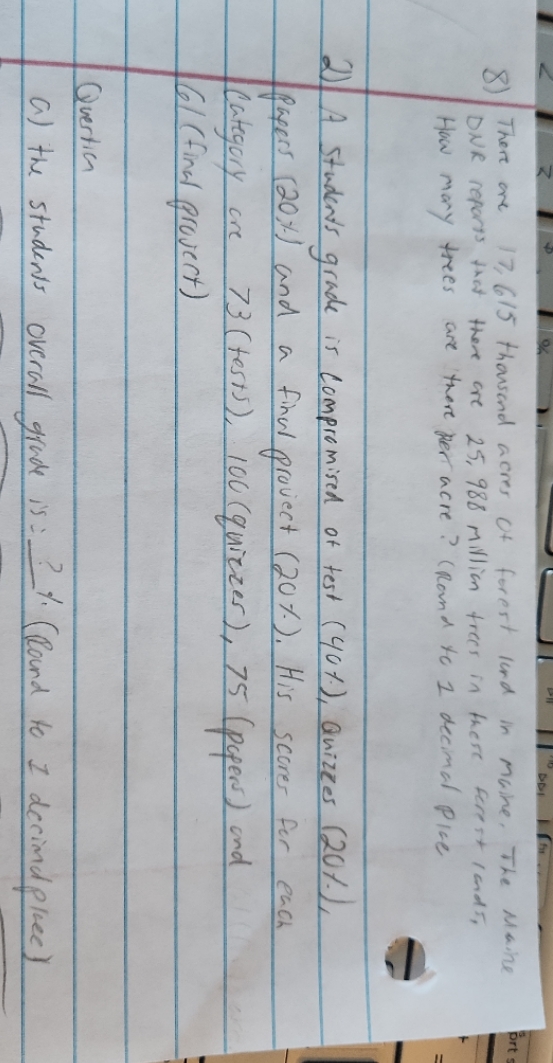 8) There are 17,615 thousand acres of forest land in Maine. The Maine
DNR reports that there are 25,988 million trees in these forest lands,
How many trees are there per acre? (Round to 1 decimal place
2) A students grade is compromised of test (40%), Quizzes (20%),
papers (20%) and a final project (20%). His scores for each
Category are 73 (tests), 100 (quizzes), 75 (papers) and
61 (final project)
Question
a) the students overall grade is: ? % (Round to 1 decimal place)